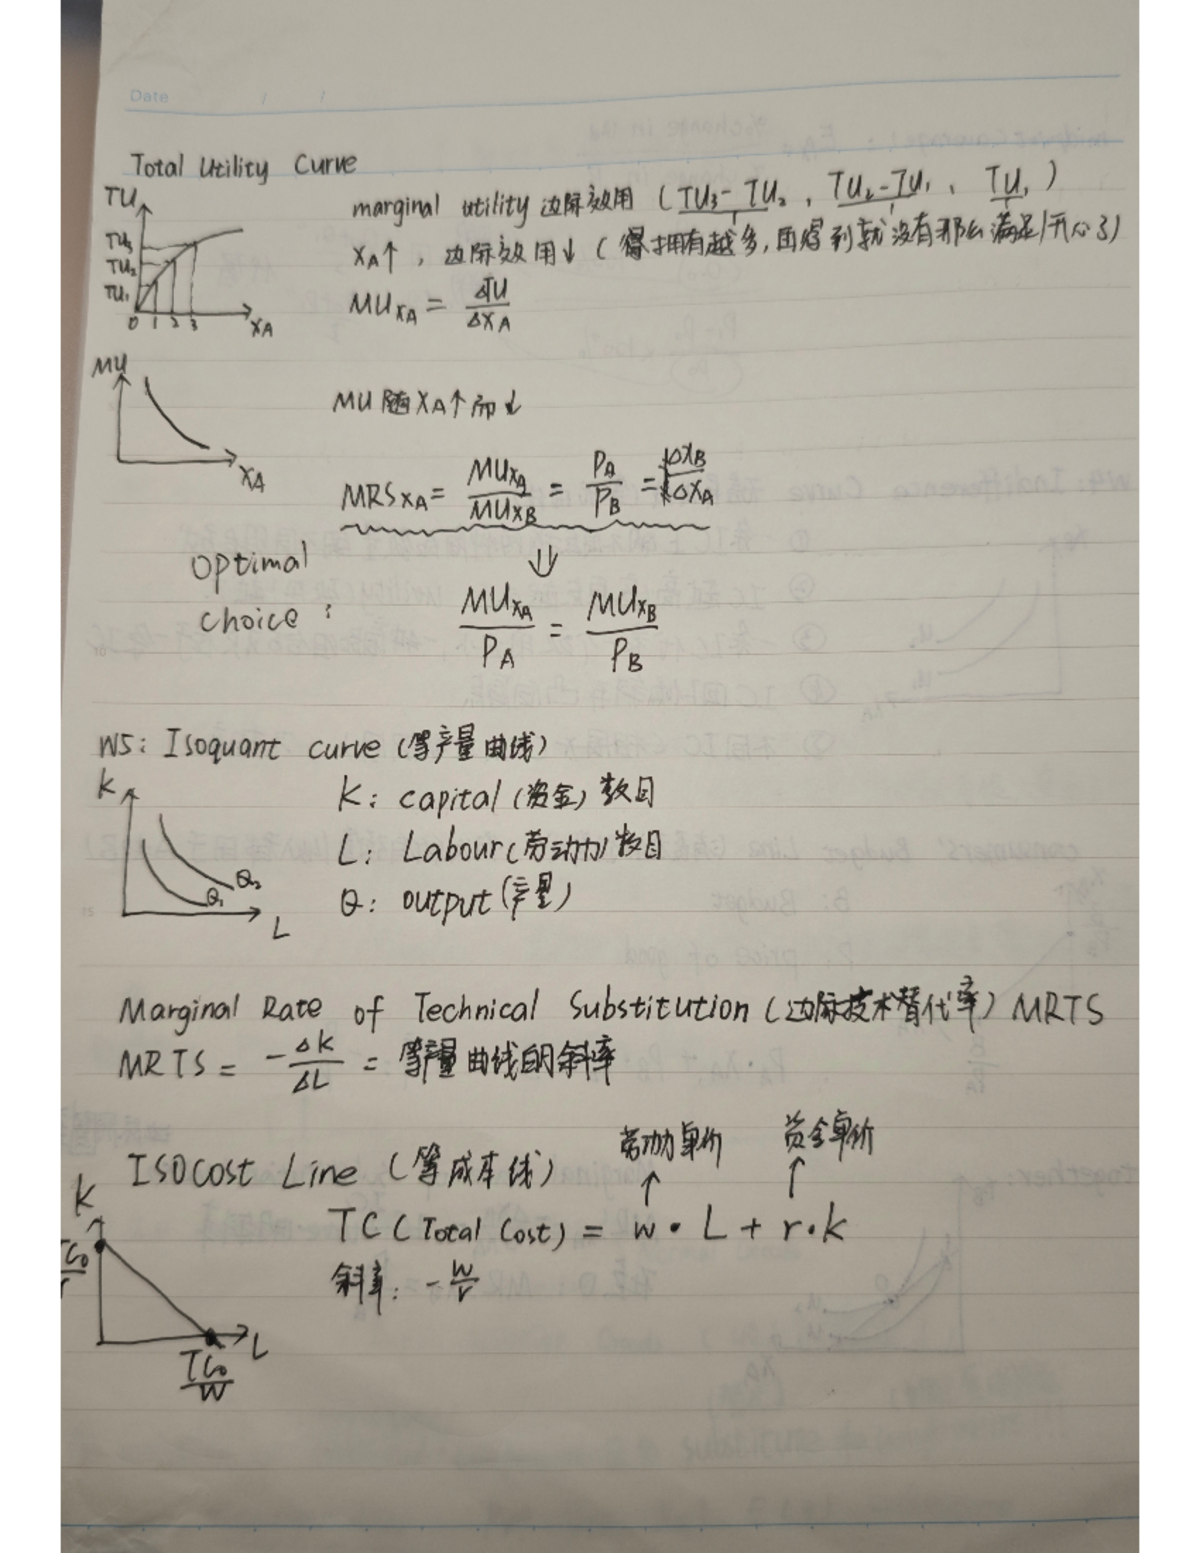 Date / /
Total Utility Curve
TU
TU₃
TU₂
TU₁
0 1 2 3 XA
marginal utility 边际效用 (TU₃-TU₂、TU₂-TU₁、TU₁)
XA↑，边际效用↓(拥有越多,再得到就没有那么满足/开心了)
MU_XA = ΔTU/ΔXA
MU
XA
MU随XA↑而↓
MRS_XA = MU_XA/MU_XB = PA/PB = ΔXB/ΔXA
⇓
optimal
choice:
MU_XA/PA = MU_XB/PB
W5: Isoquant curve (等产量曲线)
K
Q₂
Q₁
L
K: capital (资金) 数目
L: Labour (劳动力) 数目
Q: output (产量)
Marginal Rate of Technical Substitution (边际技术替代率) MRTS
MRTS = -ΔK/ΔL = 等产量曲线的斜率
劳动力单价 资金单价
↑ ↑
Isocost Line (等成本线)
TC (Total Cost) = w·L + r·k
斜率: -w/r
K
TC₀/r
L
TC₀/W